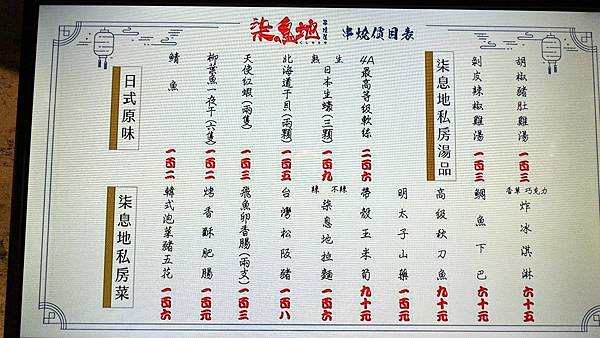 柒息地 串燒價目表
柒息地私房湯品
胡椒豬肚雞湯 一四三
剝皮辣椒雞湯 一四三
日式原味
4A最高等級軟絲 二四六
熟 生 日本生蠔(三顆) 一四九
北海道干貝(兩顆) 一四五
天使紅蝦(兩隻) 一四三
柳葉魚一夜干(六隻) 一四二
鯖魚 一四二
柒息地私房菜
香草 巧克力 炸冰淇淋 六十五
鯛魚下巴 六十元
高級秋刀魚 九十元
明太子山藥 一四元
帶殼玉米筍 九十元
辣 不辣 柒息地拉麵 一四六
台灣松阪豬 一四八
飛魚卵香腸(兩支) 一四三
烤香酥肥腸 一四元
韓式泡菜豬五花 一四六